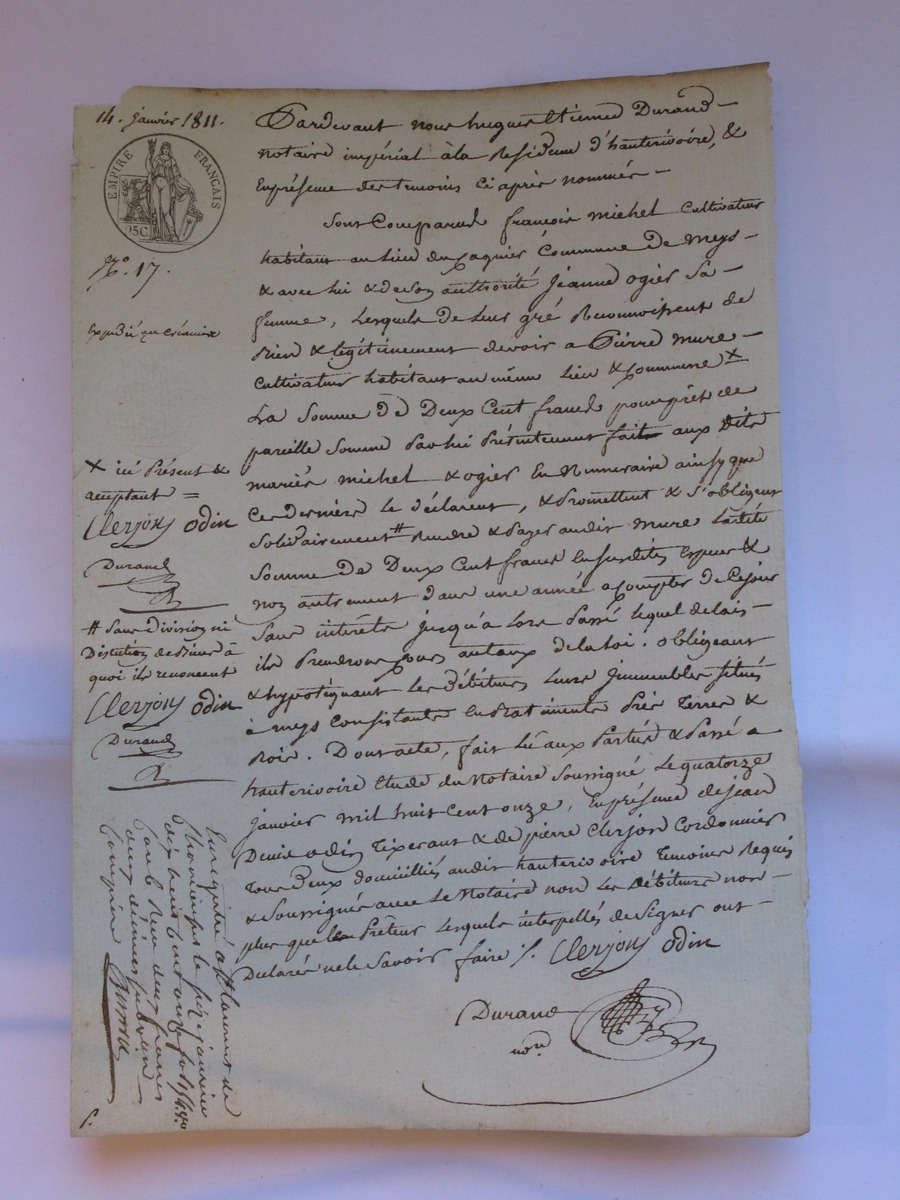 14. janvier 1811.
EMPIRE FRANÇAIS
25C
N.o 17.
Expédié au créancier
x ici Présent &
acceptant =
Clerjon odin
Durand
# Sans Division ni
Discution de biens à
quoi ils renoncent
Clerjon odin
Durand
Enregistré à St laurent de
Chamousset le seize janvier
dix huit cent onze fo 154 vo
Reçu deux francs
deux décimes subvon
Comprise
Pardevant nous hugues Etienne Durand
notaire impérial à la Residence d'hauterivoire, &
En présence des temoins ci après nommés -
Sont Comparus françois michel Cultivateur
habitant au lieu du Commune de Meys
& avec lui & de son authorité Jeanne ogier Sa
femme, Lesquels de Leur gré Reconnoissent de
bien & légitimement devoir a Pierre mure
Cultivateur habitant au même Lieu & Commune x
La Somme de Deux Cent francs pour prêt de
pareille Somme Par lui Présentement fait aux dits
mariés michel & ogier En Numeraire ainsy que
Ces derniers Le Déclarent, & Promettent & S'obligent
Solidairement # Rendre & Payer audit mure Ladite
Somme de Deux Cent francs En susdites Espèces &
non autrement dans une année a Compter de Cejour
Sans interêts jusqu'à Lors Passé Lequel delais
ils Prendront cours au taux de la loi. obligeant
& hypotéquant Les Débiteurs Leurs Jmmeubles Situés
à meys Consistants En Batiments Prés Terres &
Bois. Dont acte, fait Lû aux Parties & Passé a
hauterivoire Etude du Notaire Soussigné Le quatorze
janvier mil huit Cent onze, En présence de jean
Denis odin Tixerant & de pierre Clerjon Cordonnier
Tous Deux domiciliés audit hauterivoire Temoins Requis
& Soussignés avec Le Notaire non Les Débiteurs non
plus que le Prêteur Lesquels interpellés de Signer ont
Declarés ne le Savoir faire /. Clerjon odin
Durand
nore